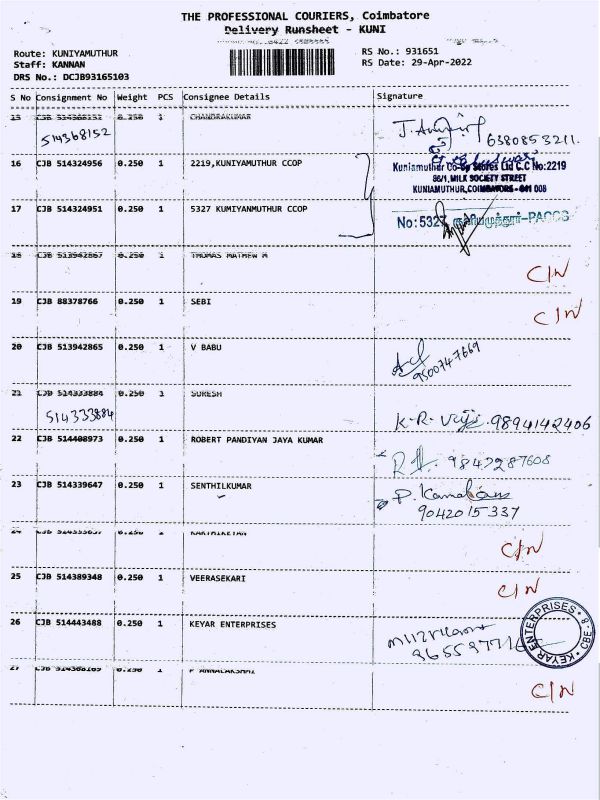 THE PROFESSIONAL COURIERS, Coimbatore
Delivery Runsheet - KUNI
Route: KUNIYAMUTHUR
Staff: KANNAN
DRS No.: DCJB93165103
RS No.: 931651
RS Date: 29-Apr-2022
S No Consignment No Weight PCS Consignee Details Signature
15 CJB 514368152 0.250 1 CHANDRAKUMAR
514368152 6380853211.
16 CJB 514324956 0.250 1 2219,KUNIYAMUTHUR CCOP
Kuniamuthur Co-op Stores Ltd C.C No:2219
86/1, MILK SOCIETY STREET
KUNIAMUTHUR, COIMBATORE - 641 008
17 CJB 514324951 0.250 1 5327 KUMIYANMUTHUR CCOP
No: 5327 குனியமுத்தூர்-PACCS
18 CJB 513942867 0.250 1 THOMAS MATHEW M
C/N
19 CJB 88378766 0.250 1 SEBI
C/N
20 CJB 513942865 0.250 1 V BABU
9500747669
21 CJB 514333884 0.250 1 SURESH
514333884 K-R-Viji 9894142406
22 CJB 514408973 0.250 1 ROBERT PANDIYAN JAYA KUMAR
9842287608
23 CJB 514339647 0.250 1 SENTHILKUMAR
P. Kamal
9042015337
24 0.250 1 KARTHIKEYAN
C/N
25 CJB 514389348 0.250 1 VEERASEKARI
C/N
26 CJB 514443488 0.250 1 KEYAR ENTERPRISES
KEYAR ENTERPRISES * CBE-8 *
27 CJB 514368169 0.250 1 P ANNALAKSHMI
C/N